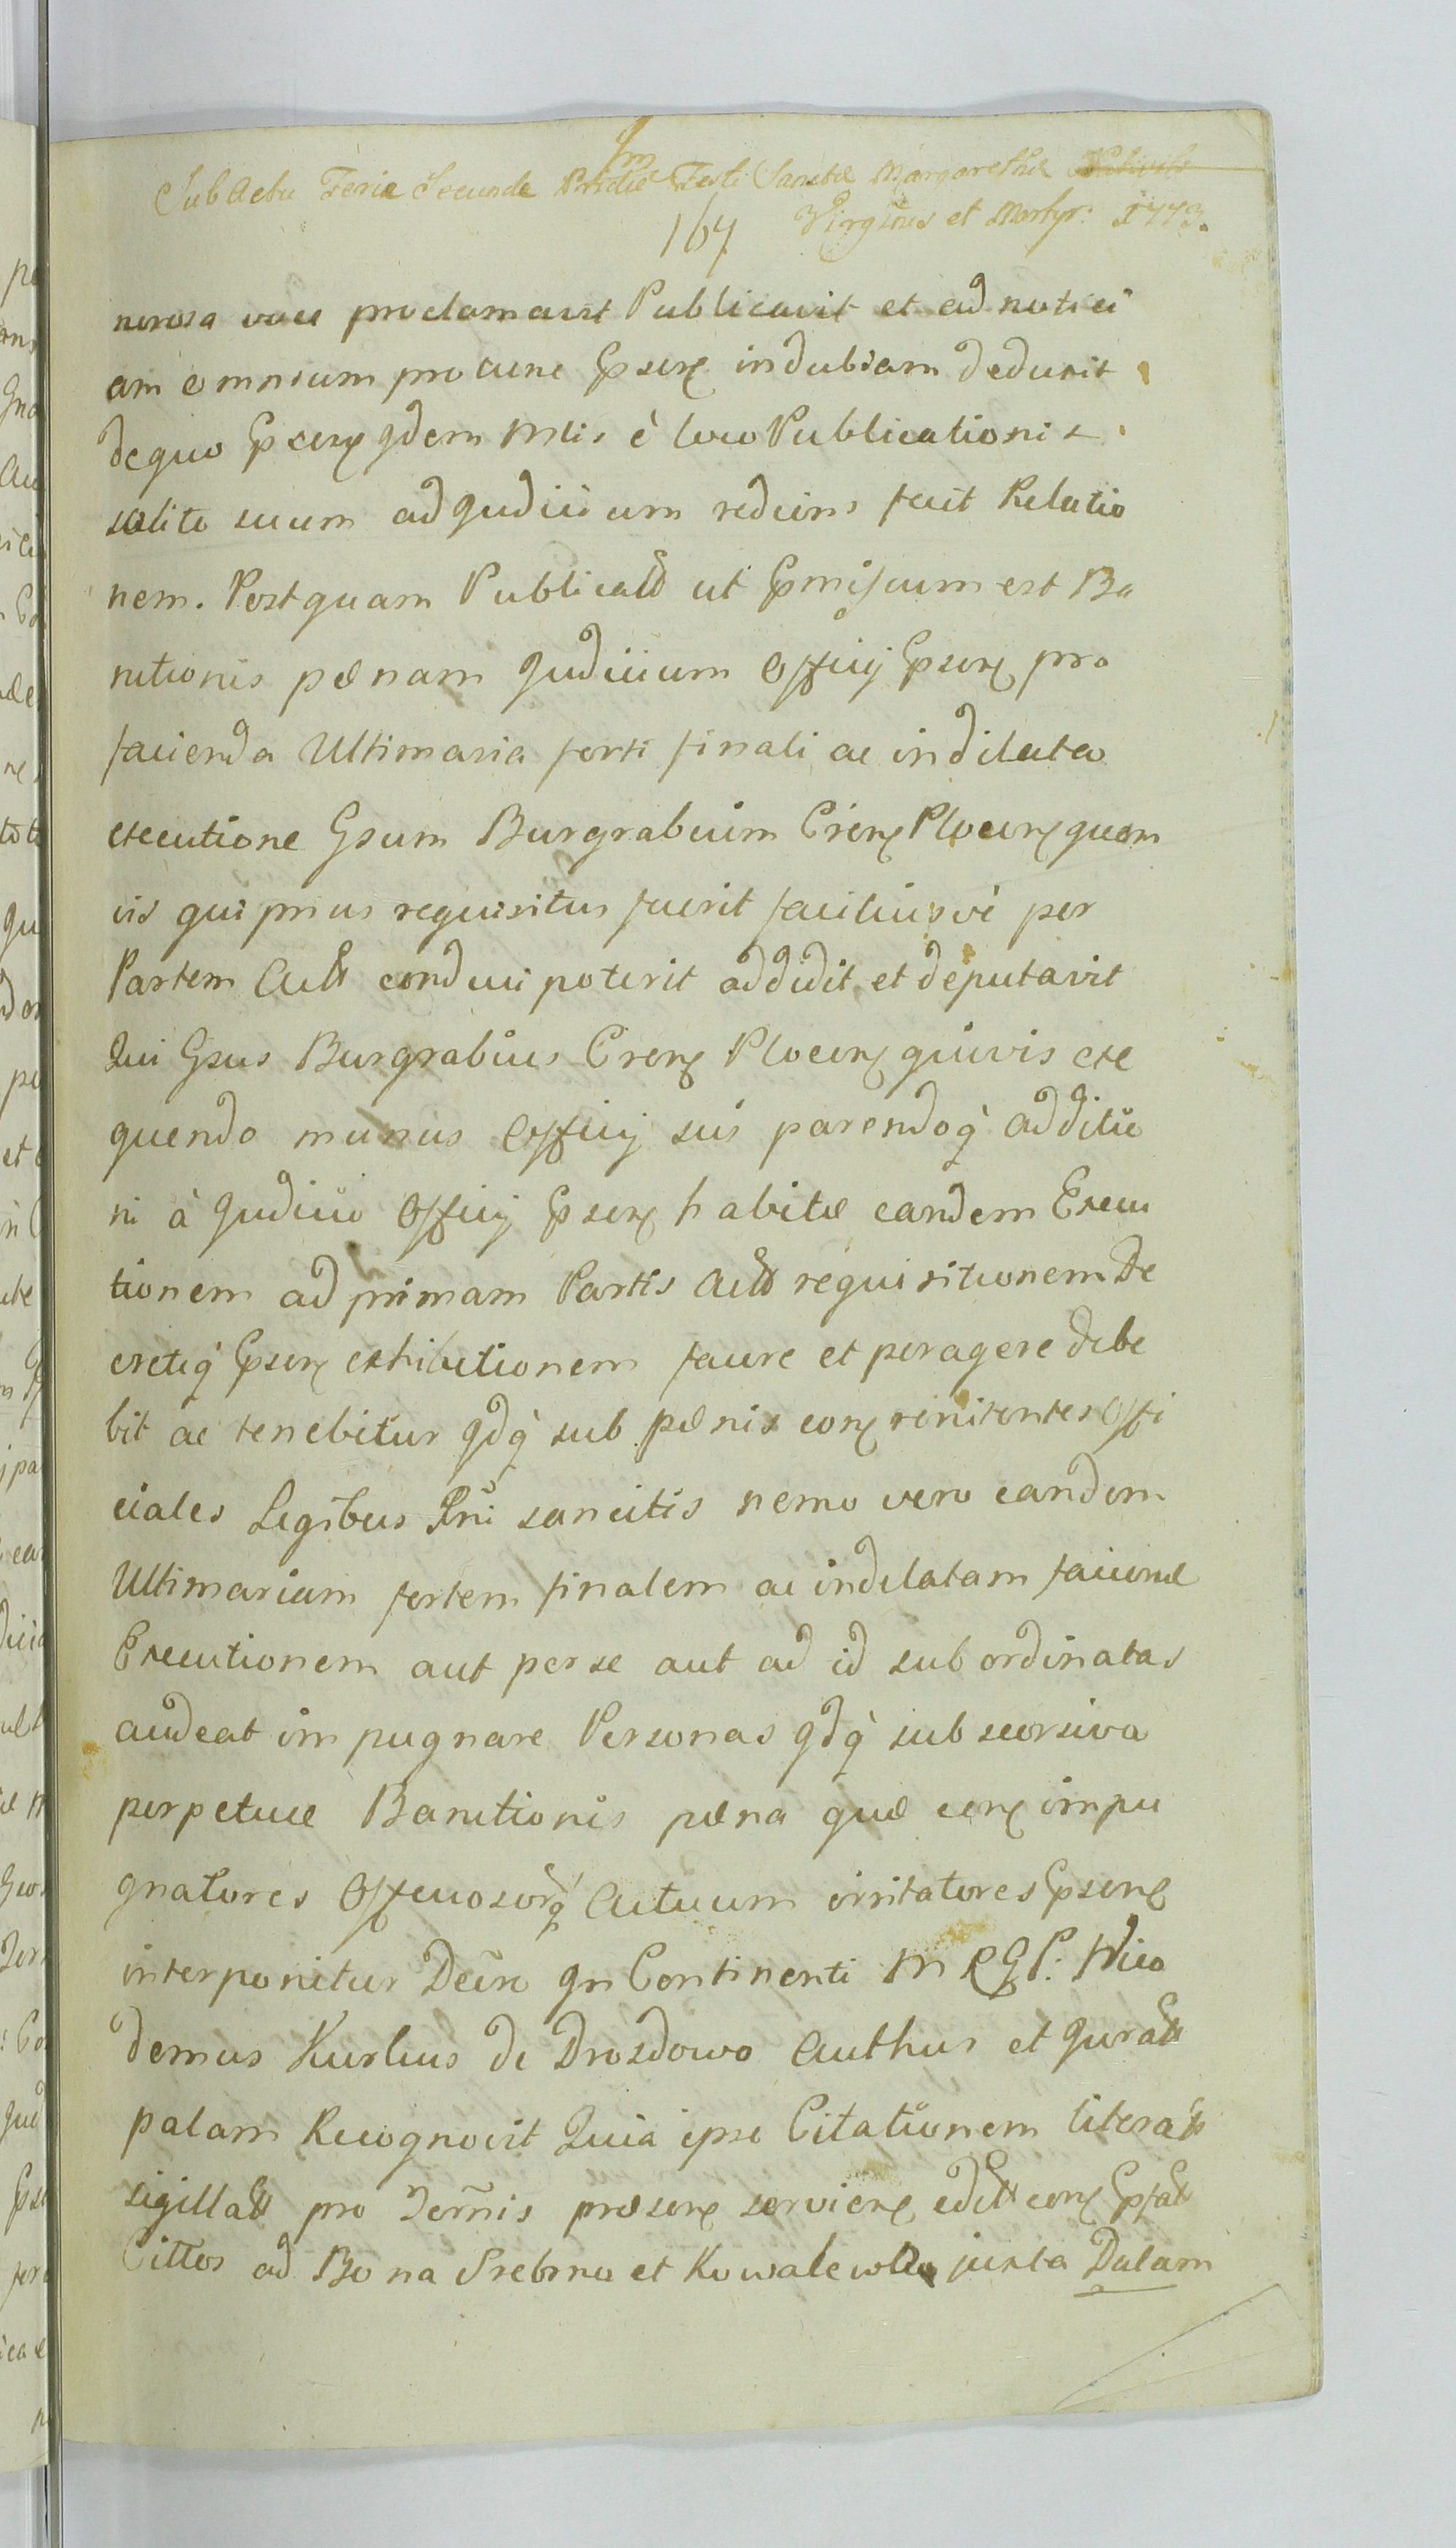 Im
Sub Actu Feriæ Secundæ Pridie Festi Sanctæ Margarethæ
Virginis et Martyr: 1773.
167
nerosa voce proclamavit Publicavit et ad notici
am omnium pro tunc Ppsen indubiam deduxit
de quo Ppsen qdem Mlis è loco Publicationis
solito suum ad Judicium rediens fecit Relatio
nem. Postquam Publicatã ut Ppmissum est Ba
nitionis pænam Judicium Officij Ppsen pro
facienda Ultimaria forti finali ac indilata
executione Gsum Burgrabium Cren Plocen quem
vis qui prius requisitus fuerit faciliusvè per
Partem Actt conduci poterit addidit et deputavit
Qui Gsus Burgrabius Cren Plocen quivis exe
quendo munus Officij sui parendoq additio
ni à Judicio Officij Ppsen habitæ eandem Execu
tionem ad primam Partis Act requisitionem De
cretiq Ppsen exhibitionem facere et peragere debe
bit ac tenebitur qdq sub pænis con renitentes Offi
ciales Legibus Rni sancitis nemo vero eandem
Ultimariam fortem finalem ac indelatam faciend
Executionem aut per se aut ad id subordinatas
audeat impugnare Personas qdq sub seorsiva
perpetuæ Banitionis pæna quæ con impu
gnatores Officiosorq Actuum irritatores Ppsen
interponitur Decro In Continenti M RGP. Nico
demus Kurlus de Drozdowo Authus et Juratt
palam Recognovit Quia ipse Citationem literatt
sigillatt pro Termis præsen servien edit con Ppfat
Cittos ad Bona Srebrna et Kowalewko juxta Datam